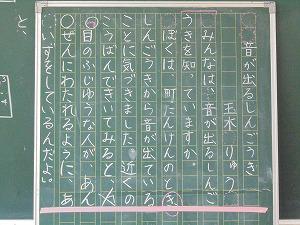 音が出るしんごうき
玉木 りゅう
みんなは、音が出るしんご
うきを知っていますか。
ぼくは、町たんけんのとき、
しんごうきから音が出ている
ことに気づきました。近くの
こうばんできいてみると、
目のふじゆうな人が、あん
ぜんにわたれるように、あ
いずをしているんだよ。
と、